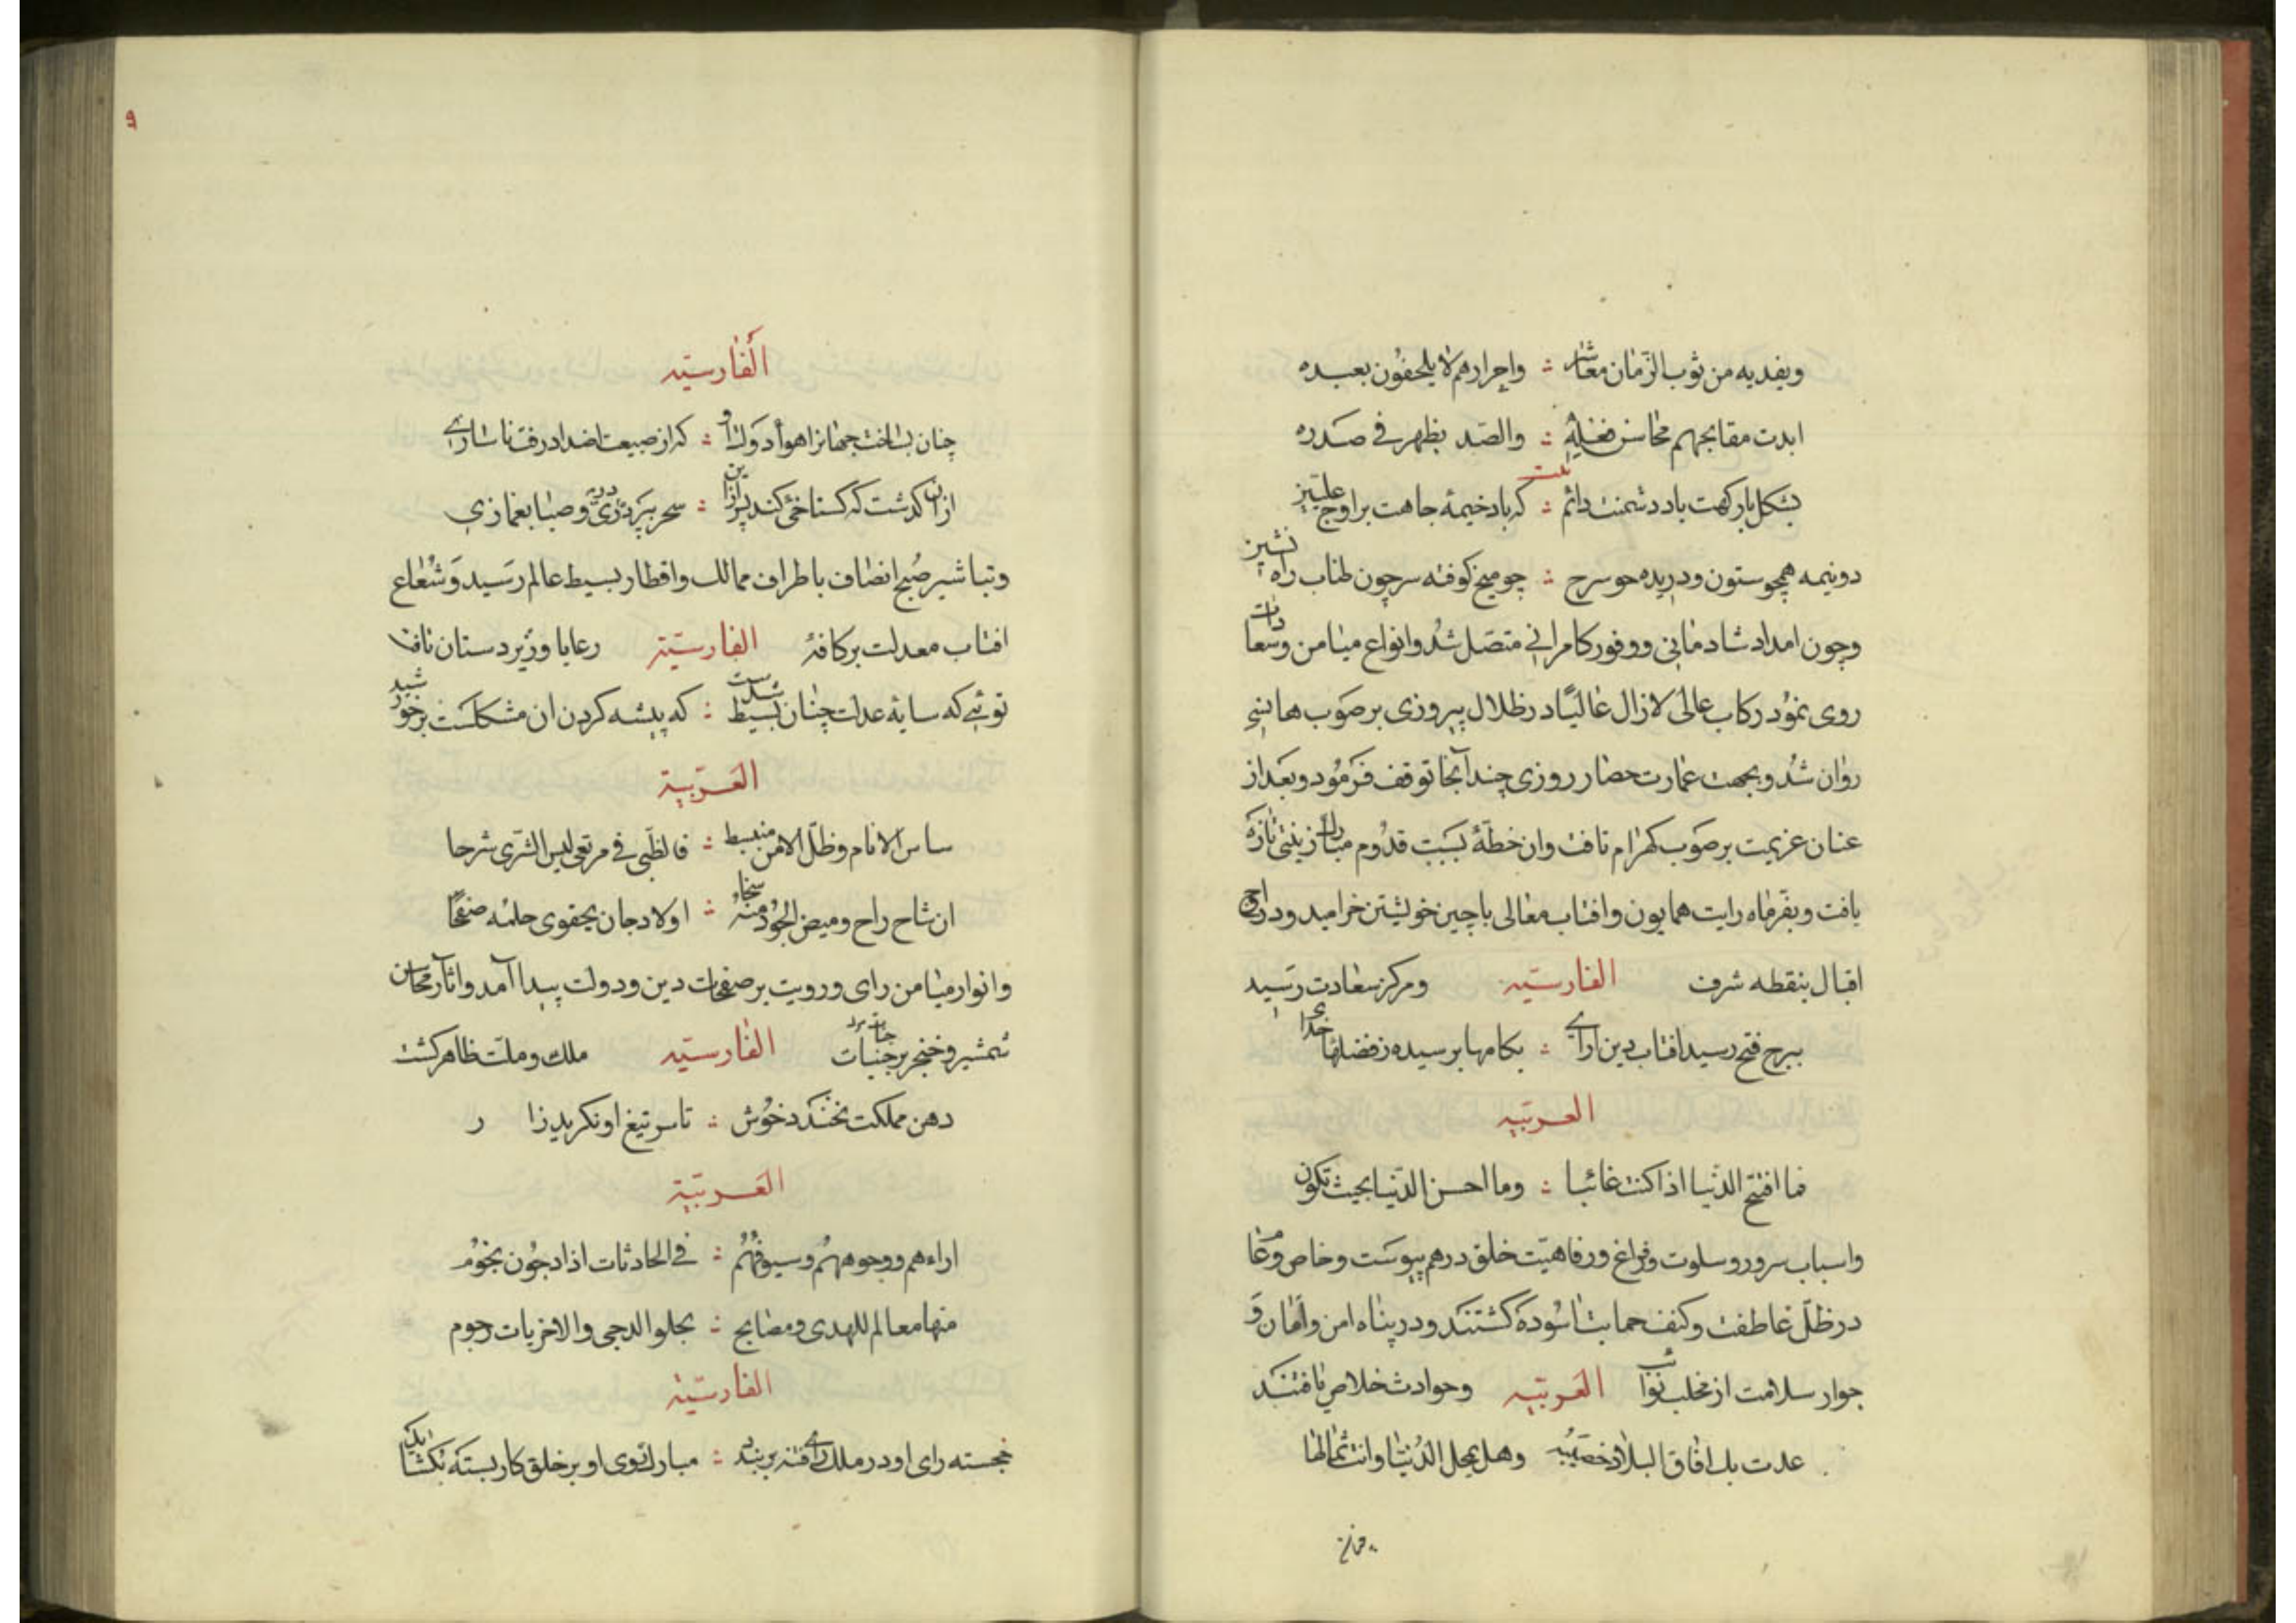 ويفديه من ثوب الزمان معاشر ؞ واحرارهم لا يلحفون بعبده
ابدت مقابحهم محاسن فضله ؞ والضد يظهر في صدره
بشكل بارگهت باد دشمنت دائم ؞ كه باد خيمهٔ جاهت بر اوج
دونيمه همچو ستون ودريده حو سرج ؞ چو ميخ كوفته سر چون طناب راه نشين
وچون امداد شادمانى ووفور كامرانى متصل شد وانواع ميامن وسعادات
روى نمود ركاب عالى لازال عاليًا در ظلال پيروزى بر صوب هانسى
روان شد وبجهت عمارت حصار روزى چند آنجا توقف فرمود وبعد از
عنان عزيمت بر صوب كهرام تافت وان خطّه بسبب قدوم مبارك زينتى تازه
يافت وبفر ماه رايت همايون وافتاب معالى باچين خويشتن خراميد ودر اوج
اقبال بنقطه شرف الفارسيّه ومركز سعادت رسيد
ببرج فتح رسيد افتاب دين اراى ؞ بكامها برسيده ز فضلهاى خداى
العربيّه
فما اقبح الدنيا اذا كنت غائبا ؞ وما احسن الدنيا بحيث تكون
واسباب سرور وسلوت وفراغ ورفاهيت خلق درهم پيوست وخاص وعام
در ظلّ عاطفت وكنف حمايت اسوده گشتند ودر پناه امن وامان و
جوار سلامت از مخلب نوائب العربيّه وحوادث خلاص يافتند
عدت بك افاق البلاد خصيبه وهل تمحل الدنيا وانت ثمالها
الفارسيّه
چنان بساخت جهانرا هواى دولت او ؞ كه از طبيعت اضداد رفت ناسازى
ازان گذشت كه گستاخئ كند پس ازين ؞ سحر بپرده درى وصبا بغمازى
وتباشير صبح انصاف باطراف ممالك واقطار بسيط عالم رسيد وشعاع
افتاب معدلت بر كافهٔ الفارسيّة رعايا وزير دستان تافت
توئى كه سايهٔ عدلت چنان بسيط شدست ؞ كه پيشه كردن ان مشكلست بر خورشيد
العربيّة
ساس الانام وظل الامن منبسط ؞ فالظبى فى مرتعى ليس الشرى شرحا
ان شاح راح وميض الجود منه سخا ؞ اولاد جان يحقوى حلمه صفحًا
وانوار ميامن راى ورويت بر صفحات دين ودولت پيدا آمد واثار محاسن
شمشير وخنجر بر جنبات الفارسيّه ملك وملت ظاهر گشت
دهن مملكت نخندد خوش ؞ تا سر تيغ او نگريد زار
العربيّة
اراءهم ووجوههم وسيوفهم ؞ فى الحادثات اذا دجون نجوم
منها معالم للهدى ومصابح ؞ تجلوا الدجى والاخريات رجوم
الفارسيّة
خجسته راى او در ملك راى فتنه ببند ؞ مبارك روى او بر خلق كار بسته گشا